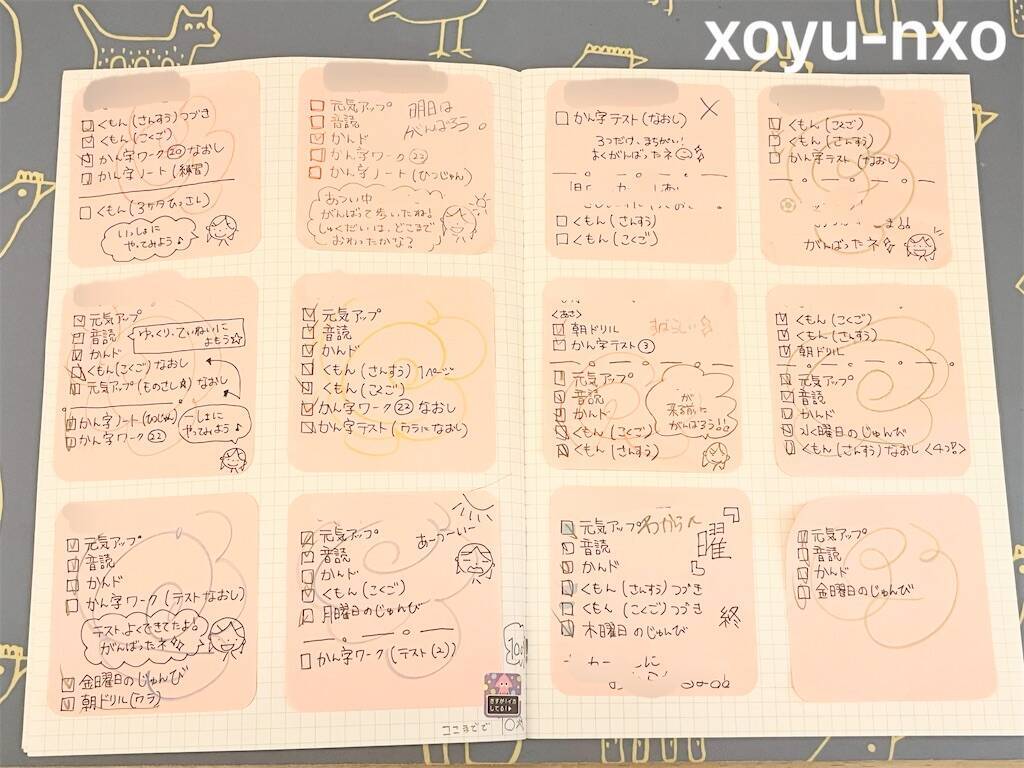 xoyu-nxo
くもん(さんすう)つづき
くもん(こくご)
かん字ワーク⑳なおし
かん字ノート(練習)
くもん(3ケタひっさん)
いっしょに
やってみよう♪
元気アップ
音読
かんド
かん字ワーク㉒
かん字ノート(ひつじゅん)
明日は
がんばろう。
あつい中
がんばって歩いたね!
しゅくだいは、どこまで
おわったかな?
かん字テスト(なおし)
3つだけ、まちがい!
よくがんばったネ
くもん(さんすう)
くもん(こくご)
くもん(こくご)
くもん(さんすう)
かん字テスト(なおし)
がんばったネ
元気アップ
音読
かんド
くもん(こくご)なおし
元気アップ(ものさし)なおし
ゆっくり、ていねいに
よもう☆
かん字ノート(ひつじゅん)
かん字ワーク㉒
一しょに
やってみよう♪
元気アップ
音読
かんド
くもん(さんすう)1ページ
くもん(こくご)
かん字ワーク㉒なおし
かん字テスト(ウラになおし)
<あさ>
朝ドリル
かん字テスト③
すばらしい
元気アップ
音読
かんド
くもん(こくご)
くもん(さんすう)
がんばろう!!
くもん(こくご)
くもん(さんすう)
朝ドリル
元気アップ
音読
かんド
水曜日のじゅんび
くもん(さんすう)なおし<4つ>
元気アップ
音読
かんド
かん字ワーク(テストなおし)
テスト、よくできてたよ!
がんばったネ
金曜日のじゅんび
朝ドリル(ウラ)
元気アップ
音読
かんド
くもん(こくご)
月曜日のじゅんび
あーつーいー
かん字ワーク(テスト(2))
元気アップ
音読
かんド
くもん(さんすう)つづき
くもん(こくご)つづき
木曜日のじゅんび
わからん
曜
終
元気アップ
音読
かんド
金曜日のじゅんび
さすが!イカ
してる!
ここまでで